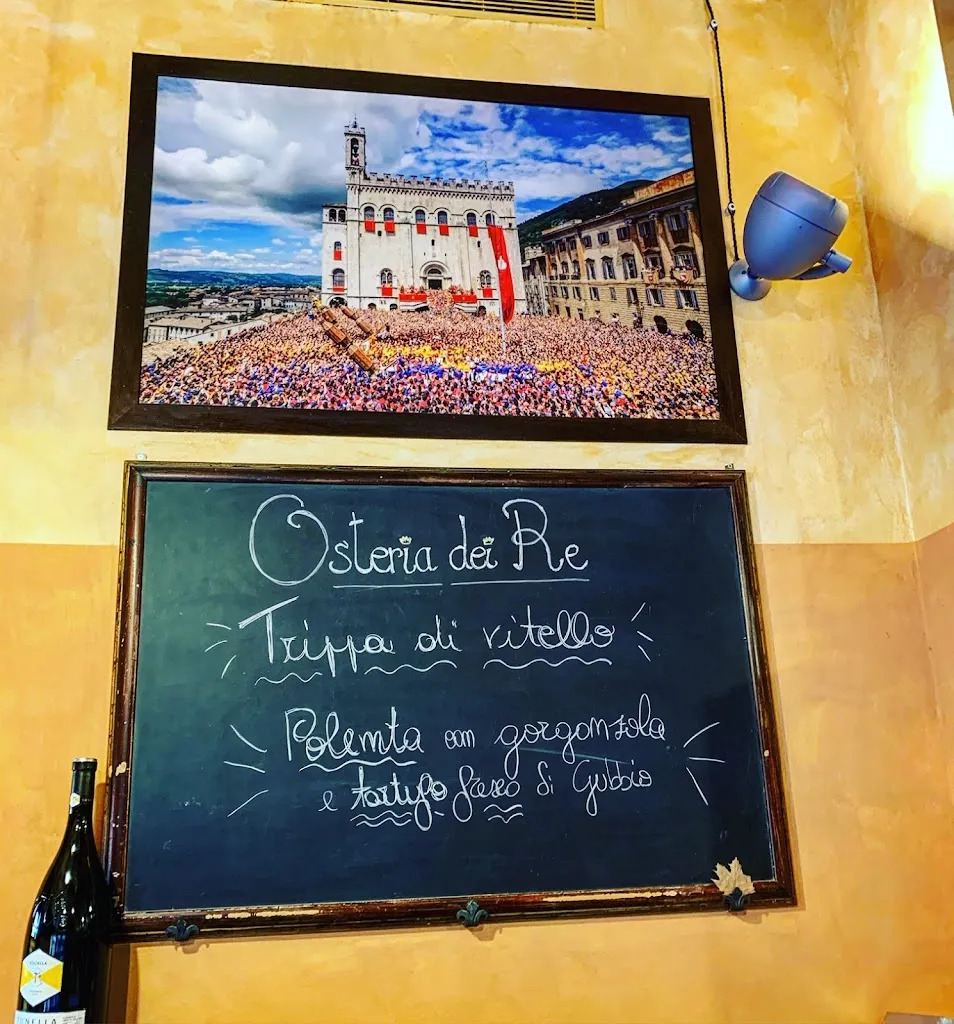 Osteria dei Re
Trippa di vitello
Polenta con gorgonzola
e tartufo fresco di Gubbio
TUNELLA